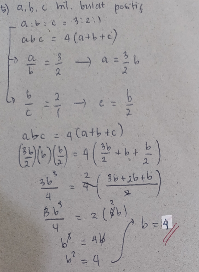 5) a, b, c bil. bulat positif
a : b : c = 3 : 2 : 1
abc = 4(a+b+c)
→ a/b = 3/2 → a = 3/2 b
→ b/c = 2/1 → c = b/2
abc = 4(a+b+c)
(3b/2)(b)(b/2) = 4(3b/2 + b + b/2)
3b³/4 = 4(3b+2b+b/2)
3b³/4 = 2(6b)
b³ = 
b² = 4
b = 4